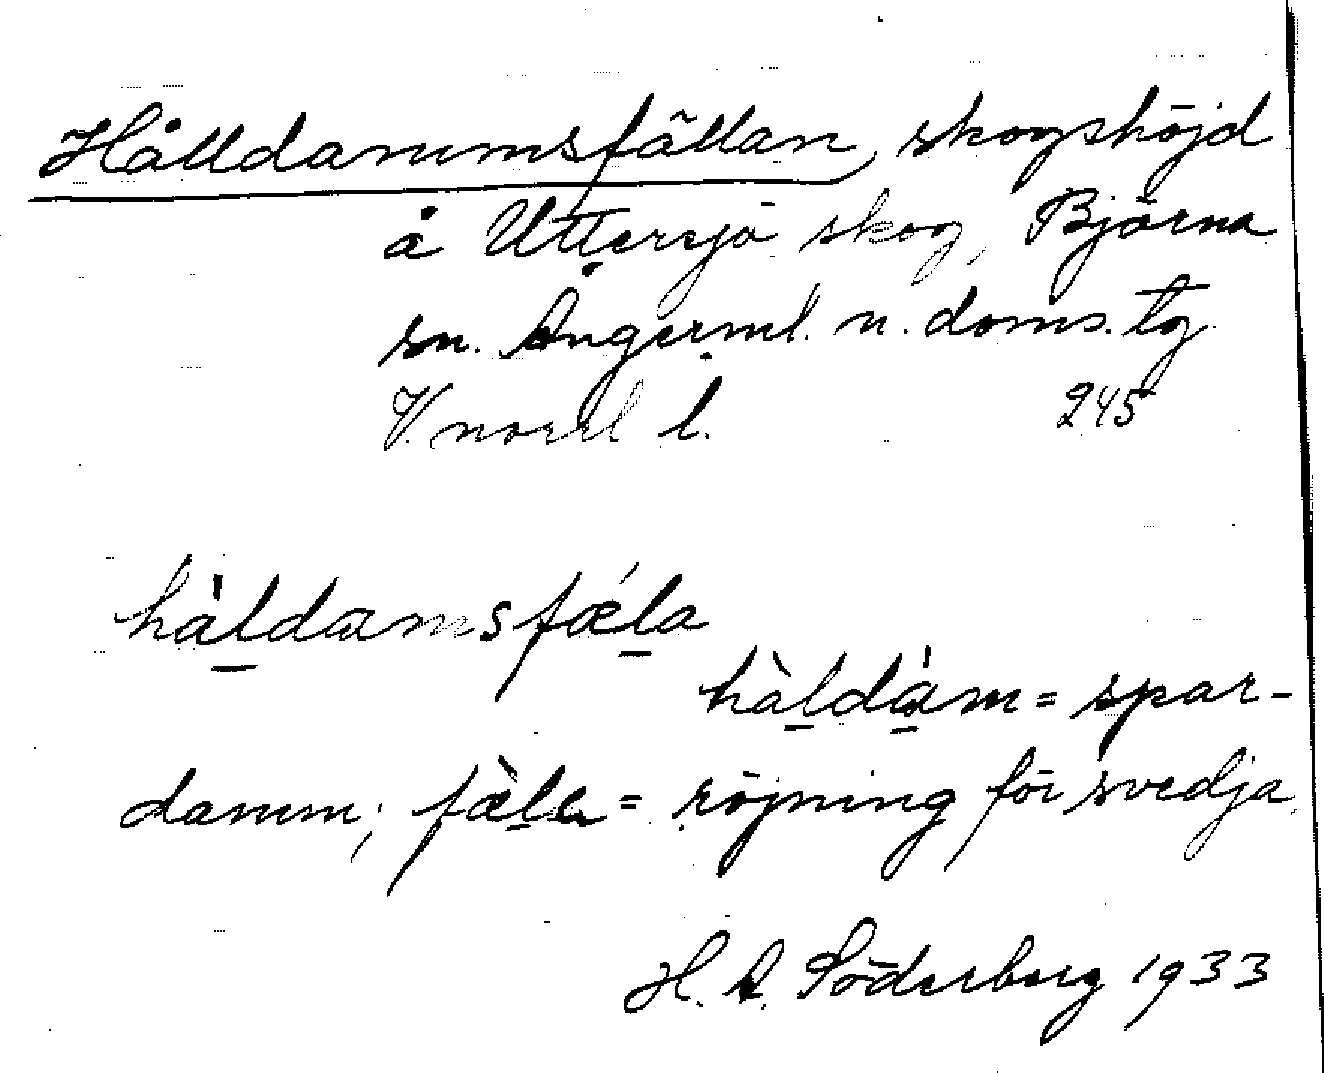 Hålldammsfällan, skogshöjd
å Uttersjö skog, Björna
sn. Ångerml. n. doms. tg
V. norrl l. 245
hàldamsfæla
hàldàm = spar-
damm; fæ̀la = röjning för svedja
H. A. Söderberg 1933